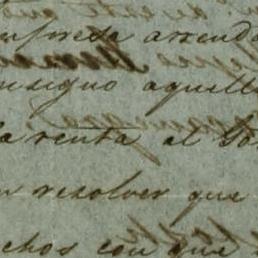 empresa arrenda
nsigno aquella
la renta al Go
n resolver que
chos con que